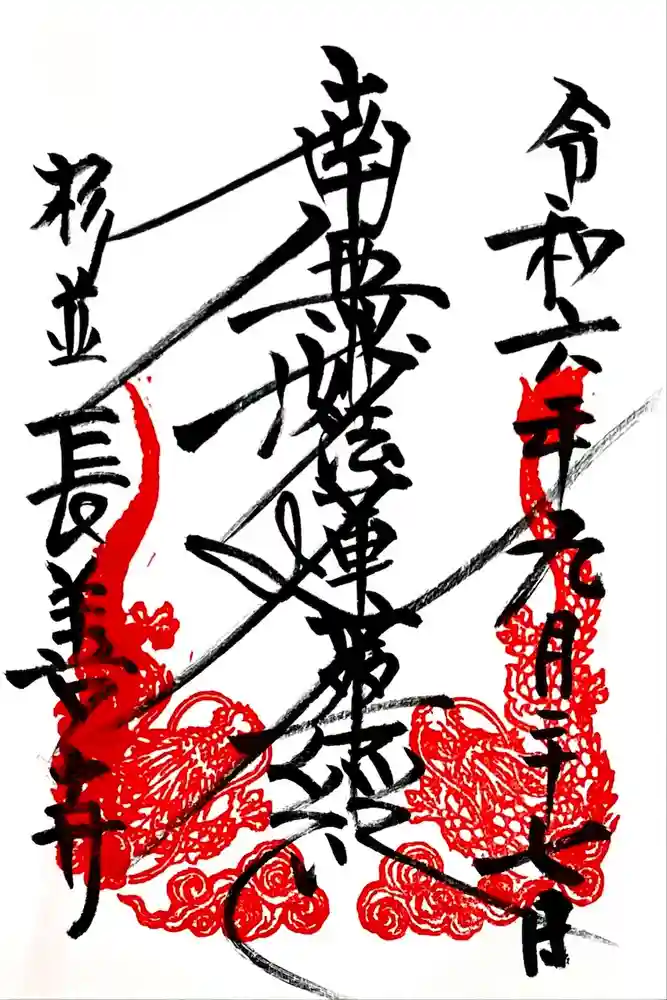 令和六年元月二十七日
南無妙法蓮華經
杉並 長善寺